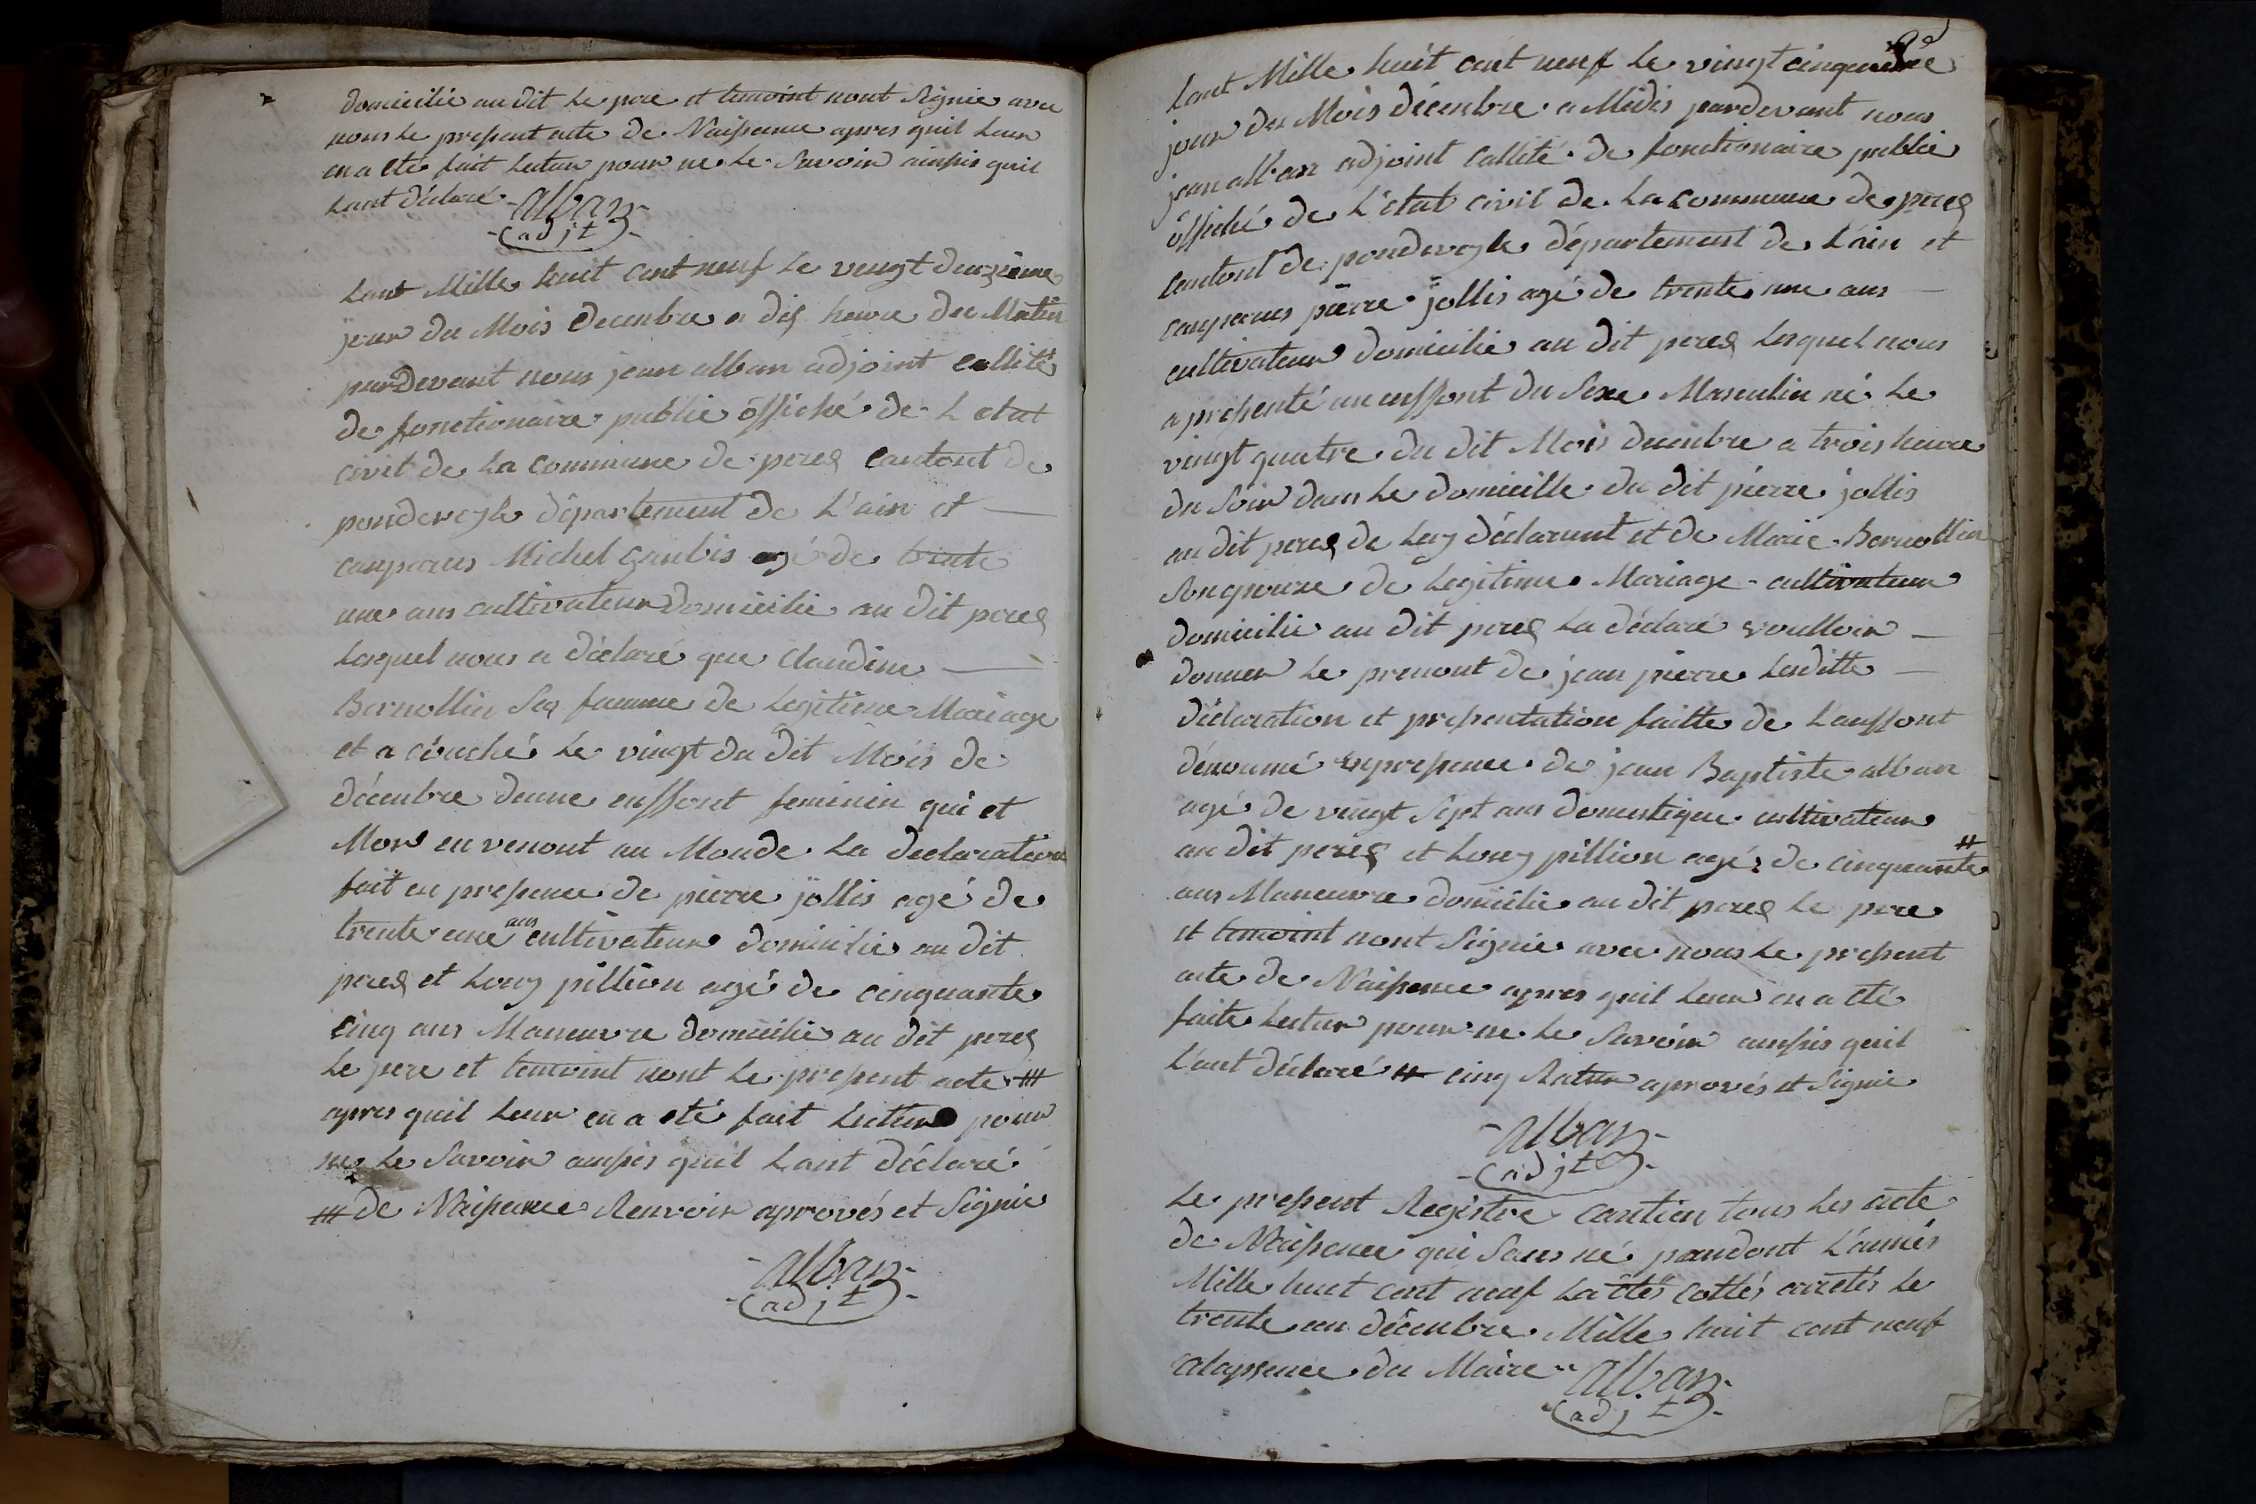 domicilié au dit le pere et temoint nont Signié avec
nous le present acte de Naissance apres quil leur
en a eté fait lectur pour ne le Savoir ainssis quil
laont déclaré
alban
adjt
Lant Mille huit cent neuf le vengt deuzieme
jour du Mois decenbre a dix heure du Matin
pardevant nous jean alban adjoint callité
de fonctionaire public öffiché de L etat
civil de la commune de peres cantont de
pondeveyle département de L'ain et
canparus Michel Ganbis agé de trente
une ans cultivateur domicilié au dit peres
lesquel nous a déclaré que Claudine
Bernollin Sa famme de legitime Mariage
et a couché le vingt du dit Mois de
décenbre denne enffont feminin qui et
Mors en venont au Monde la declaration
fait en presence de piere jollis agé de
trente une ans cultivateur domicilié au dit
peres et Louy pillion agé de cinquante
cinq ans Maneuvre domicilié au dit peres
Le pere et temoint nont le present acte #
apres quil leur en a eté fait lectur pour
ne le Savoir ainssis quil lant déclaré
# de Naissance Renvoir aprovés et Signié
alban
adjt
8e
Lant Mille huit cent neuf le vingt cinquieme
jour du Mois décenbre a Midis pardevant nous
jean alban adjoint callité de fonctionaire public
öffiché de L'etat civil de la commune de peres
cantont de pondeveyle département de L'ain et
canparus pierre jollis agé de trente une ans
cultivateur domicilié au dit peres lesquel nous
a presenté un enffont du Sexe Masculin né le
vingt quatre du dit Mois decenbre a trois heure
du Soir dans le domicille du dit pierre jollis
au dit peres de luy déclarant et de Marie Bernollin
Sonpouze de legitime Mariage cultivateur
domicilié au dit peres la déclaré voulloir
donner le prenont de jean pierre lesditte
déclaration et presentation faitte de Lanffont
dénoumé enpresence de jean Baptiste alban
agé de vengt Sept ans domestique cultivateur
au dit peres et Louy pillion agé de cinquante #
ans Maneuvre domicilié au dit peres le pere
et temoint nont Signié avec nous le present
acte de Naissance apres quil leur en a eté
faite lectur pour ne le Savoir ainssis quil
L'ant déclaré # cinq Ratur aprovés et Signié
alban
adjt
Le present Registre contien tous les acte
de Naissance qui Sons né pandont L'année
Mille huit cent neuf la etés cottés arretés le
trente un décenbre Mille huit cent neuf
alapsence du Maire
alban
adjt